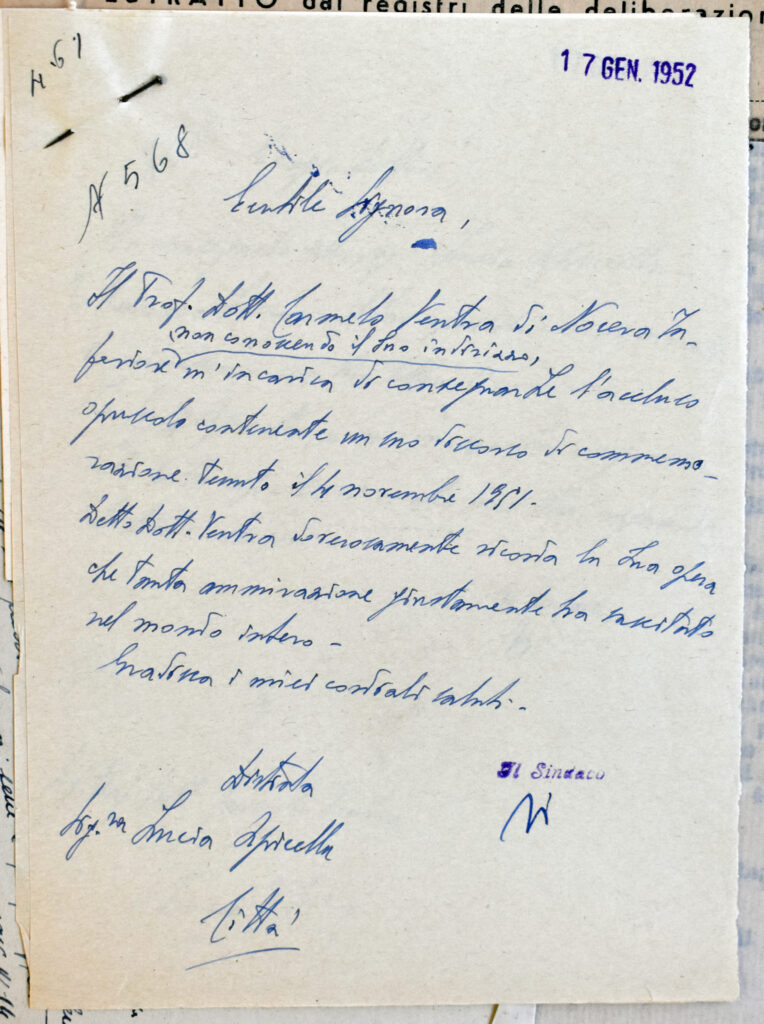 ESTRATTO dai registri delle deliberazion
17 GEN. 1952
N 568
Gentile Signora,
Il Prof. Dott. Carmelo Ventra di Nocera In-
non conoscendo il Suo indirizzo,
feriore m'incarica di consegnarLe l'accluso
opuscolo contenente un suo discorso di commemo-
razione tenuto il 4 novembre 1951.
Detto Dott. Ventra doverosamente ricorda la Sua opera
che tanta ammirazione giustamente ha suscitato
nel mondo intero -
Gradisca i miei cordiali saluti -
Il Sindaco
Distinta
Sig.ra Lucia Apicella
Città